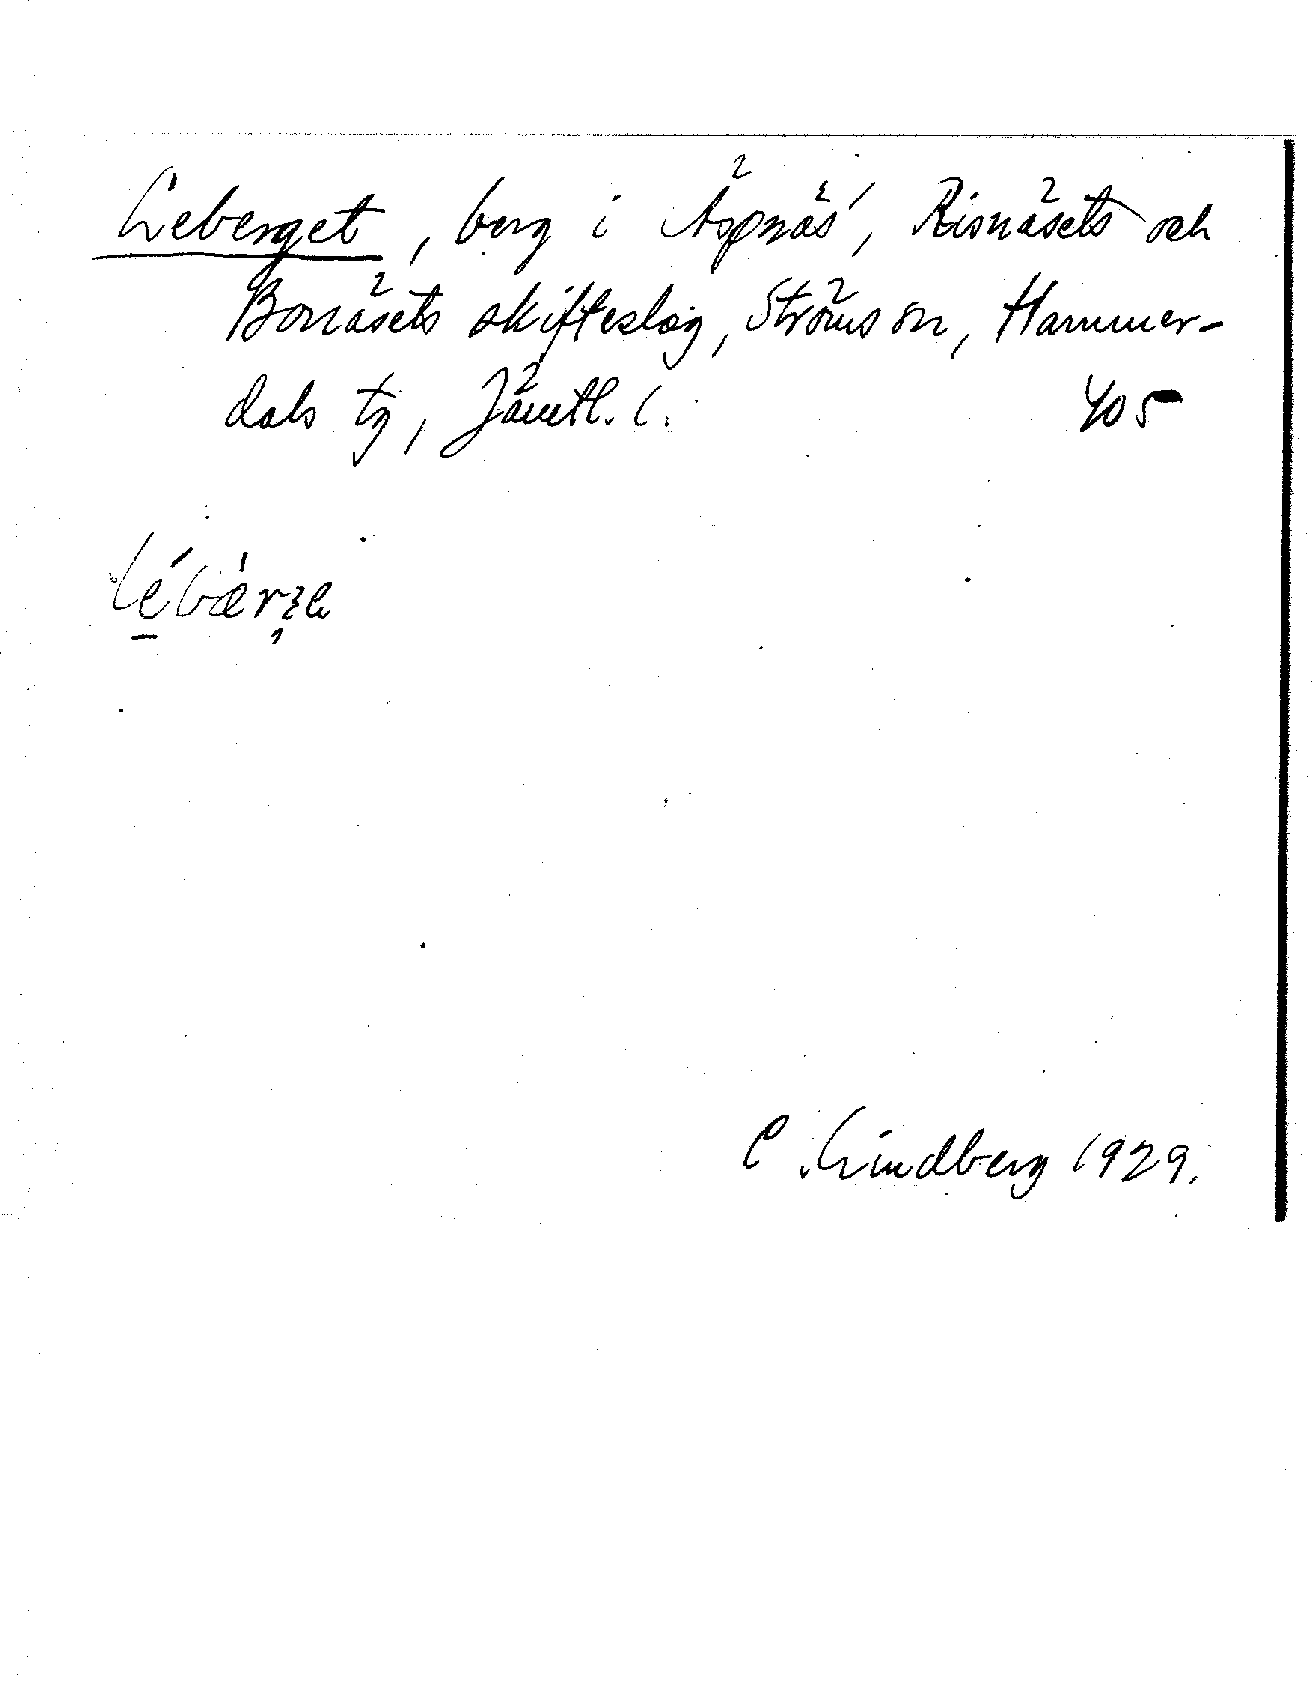 Leberget, berg i Äspnäs, Risnäsets och
Bonäsets skifteslag, Ströms sn, Hammer-
dals tg, Jämtl. l. 405
lébærʒe
C. Lindberg 1929.